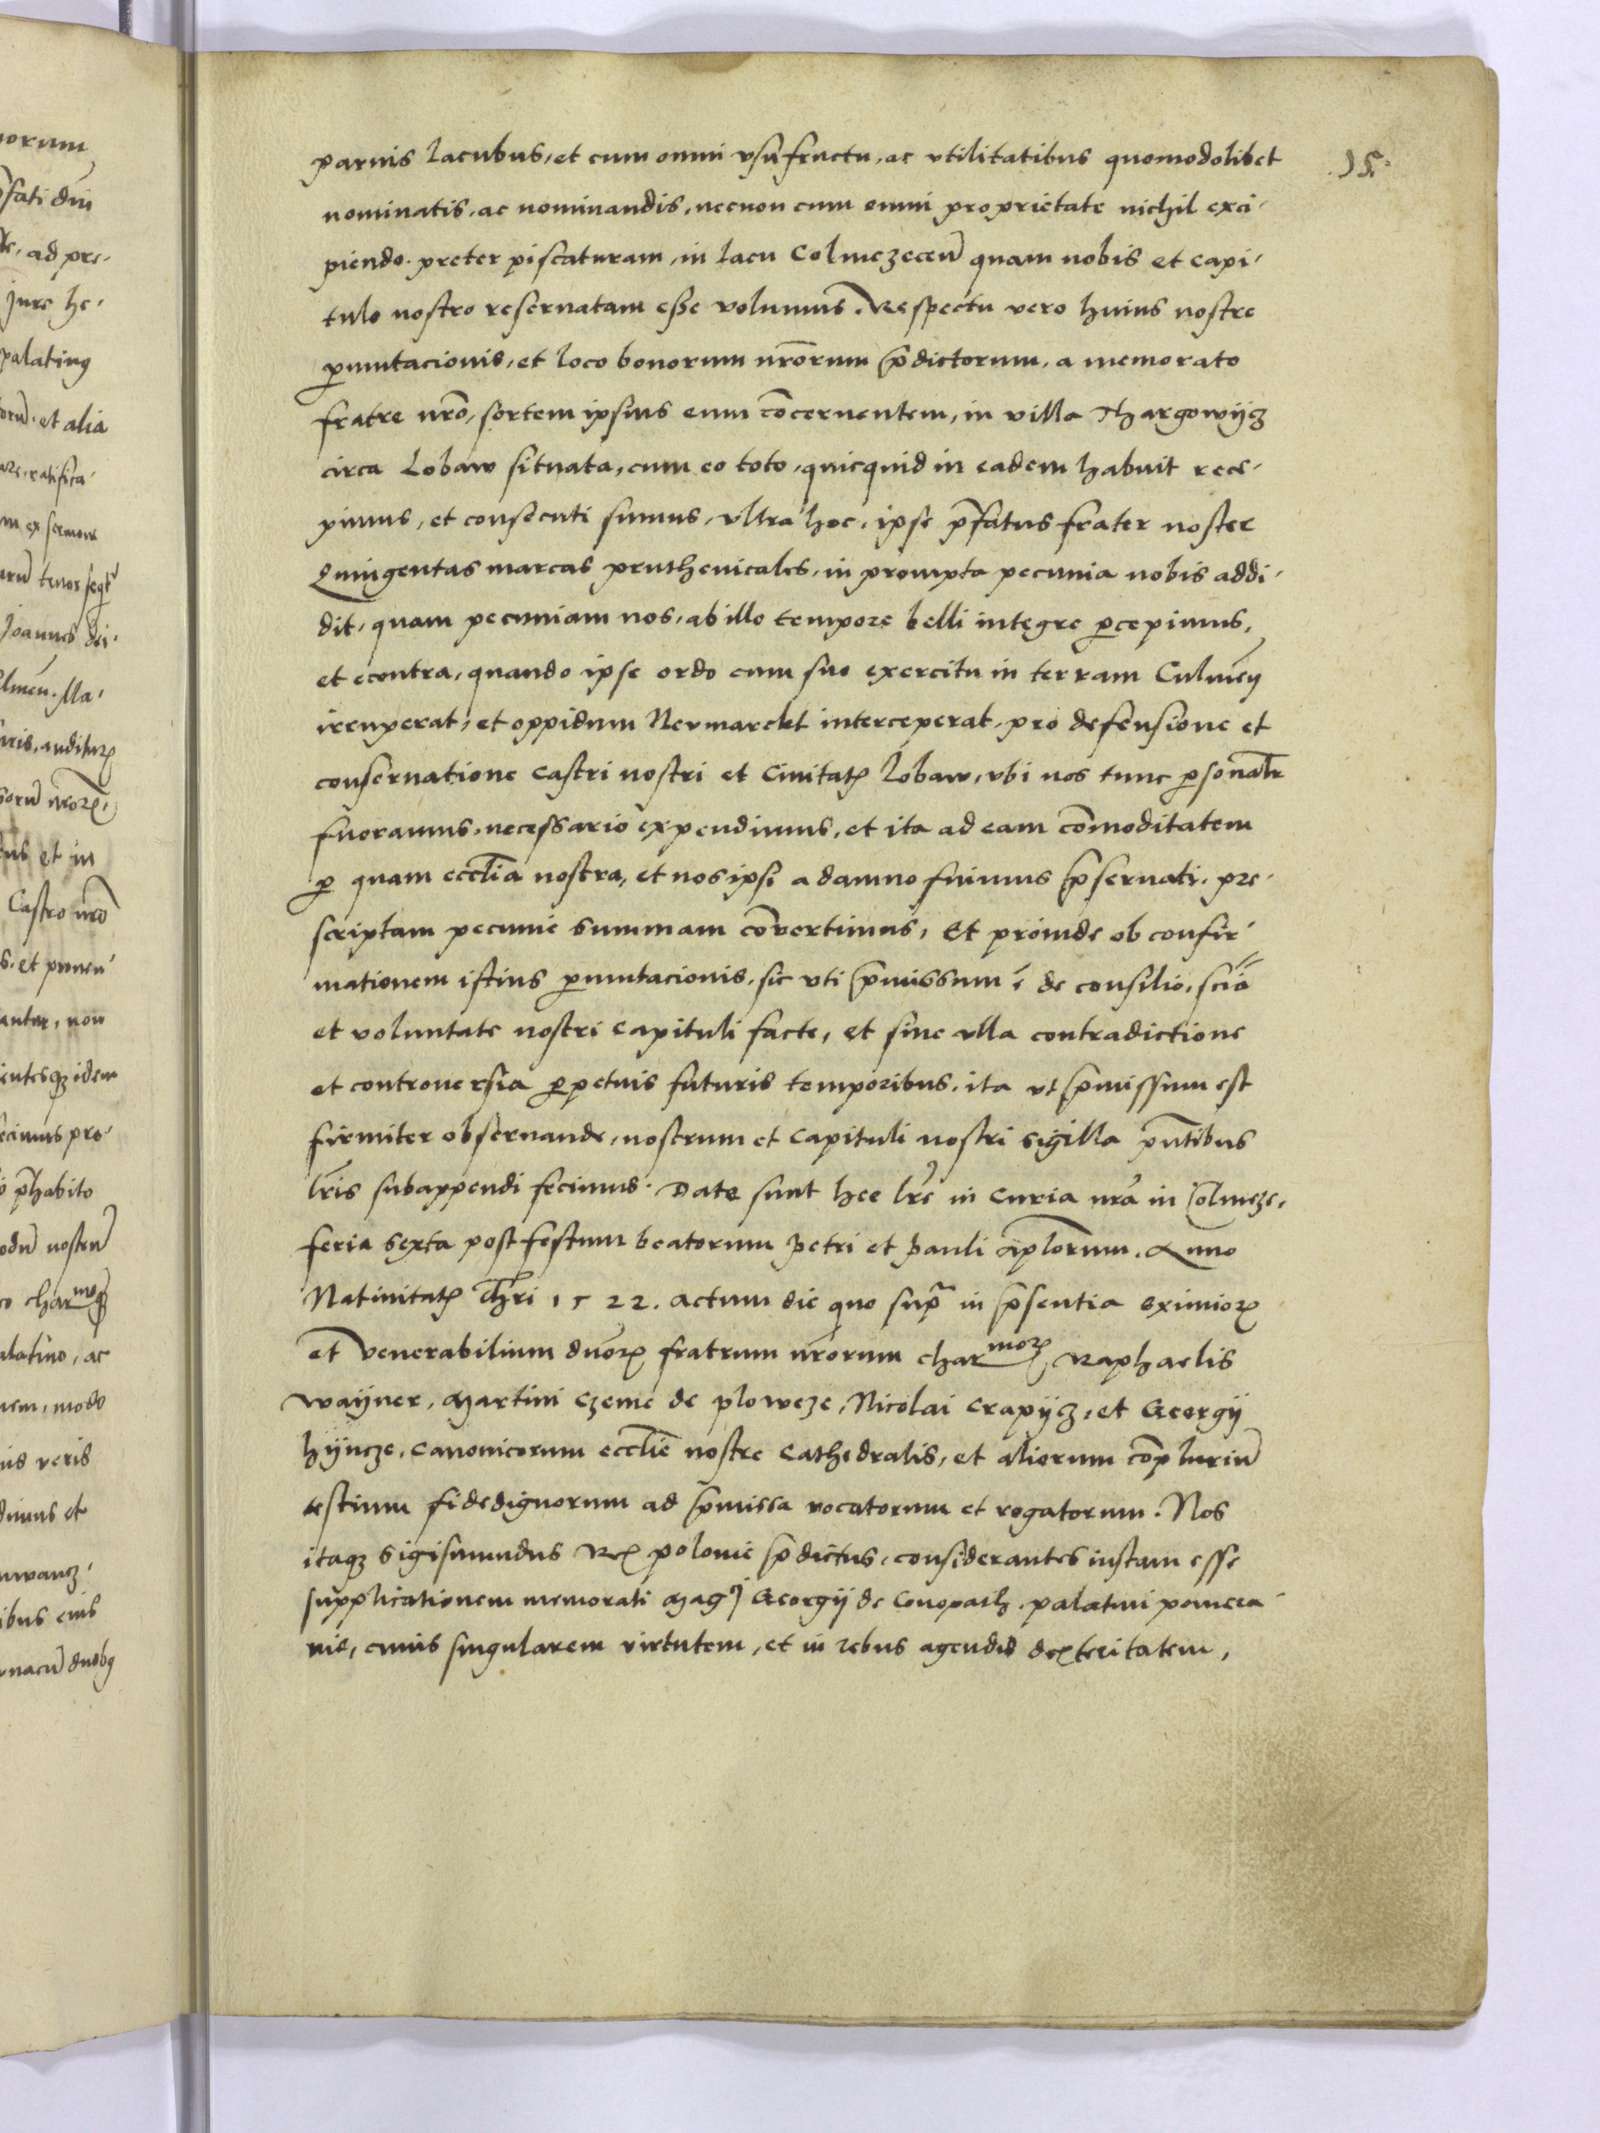 15.
paruis lacubus, et cum omni vsufructu, ac vtilitatibus quomodolibet
nominatis, ac nominandis, necnon cum omni proprietate nichil exci-
piendo. preter piscaturam, in lacu Colmezecen̄ quam nobis et capi-
tulo nostro reseruatam esse volumus. Respectu vero huius nostre
p̱mutacionis, et loco bonorum nr̄orum p̄dictorum, a memorato
fratre nr̄o, sortem ipsius eum cōcernentem, in villa Thargowÿcz
circa Lobaw situata, cum eo toto, quicquid in eadem habuit rece-
pimus, et consecuti sumus, vltra hoc, ipse p̄fatus frater noster
Quingentas marcas pruthenicales, in prompta pecunia nobis addi-
dit, quam pecuniam nos, ab illo tempore belli integre p̱cepimus,
et econtra, quando ipse ordo cum suo exercitu in terram Culmeñ
irruperat, et oppidum Neumarckt interceperat, pro defensione et
conseruatione castri nostri et Ciuitatꝭ Lobaw, vbi nos tunc p̱sonalr̄
fueramus, necessario expendimus, et ita ad eam cōmoditatem
p̱ quam eccl̄ia nostra, et nos ipsi a damno fuimus p̄seruati. pre-
scriptam pecunie summam cōuertimus, Et proinde ob confir-
mationem istius p̱mutacionis, sic vti p̄missum ē de consilio, sciā
et voluntate nostri Capituli facte, et sine vlla contradictione
et controuersia p̱petuis futuris temporibus, ita vt p̄missum est
firmiter obseruande, nostrum et Capituli nostri sigilla pn̄tibus
lr̄is subappendi fecimus. Date sunt hee lr̄e in Curia nr̄a in Colmeze,
feria sexta post festum beatorum Petri et Pauli apl̄orum. Anno
Natiuitatꝭ Chr̄i 1522. actum die quo supᵃ in p̄sentia eximioꝝ
et Venerabilium duoꝝ fratrum nr̄orum charᵐᵒꝝ, Raphaelis
Waÿner, Martini Czeme de ploweze, Nicolai Crapÿcz, et Georgÿ
hÿncze, Canonicorum eccl̄ie nostre Cathedralis, et aliorum cōpluriū
testium fidedignorum ad p̄missa vocatorum et rogatorum. Nos
itaqꝫ Sigismundus Rex polonie p̄dictus, considerantes iustam esse
supplicationem memorati Magᶜⁱ Georgÿ de Conopath, palatini pomera
nie, cuius singularem virtutem, et in rebus agendis dexteritatem,